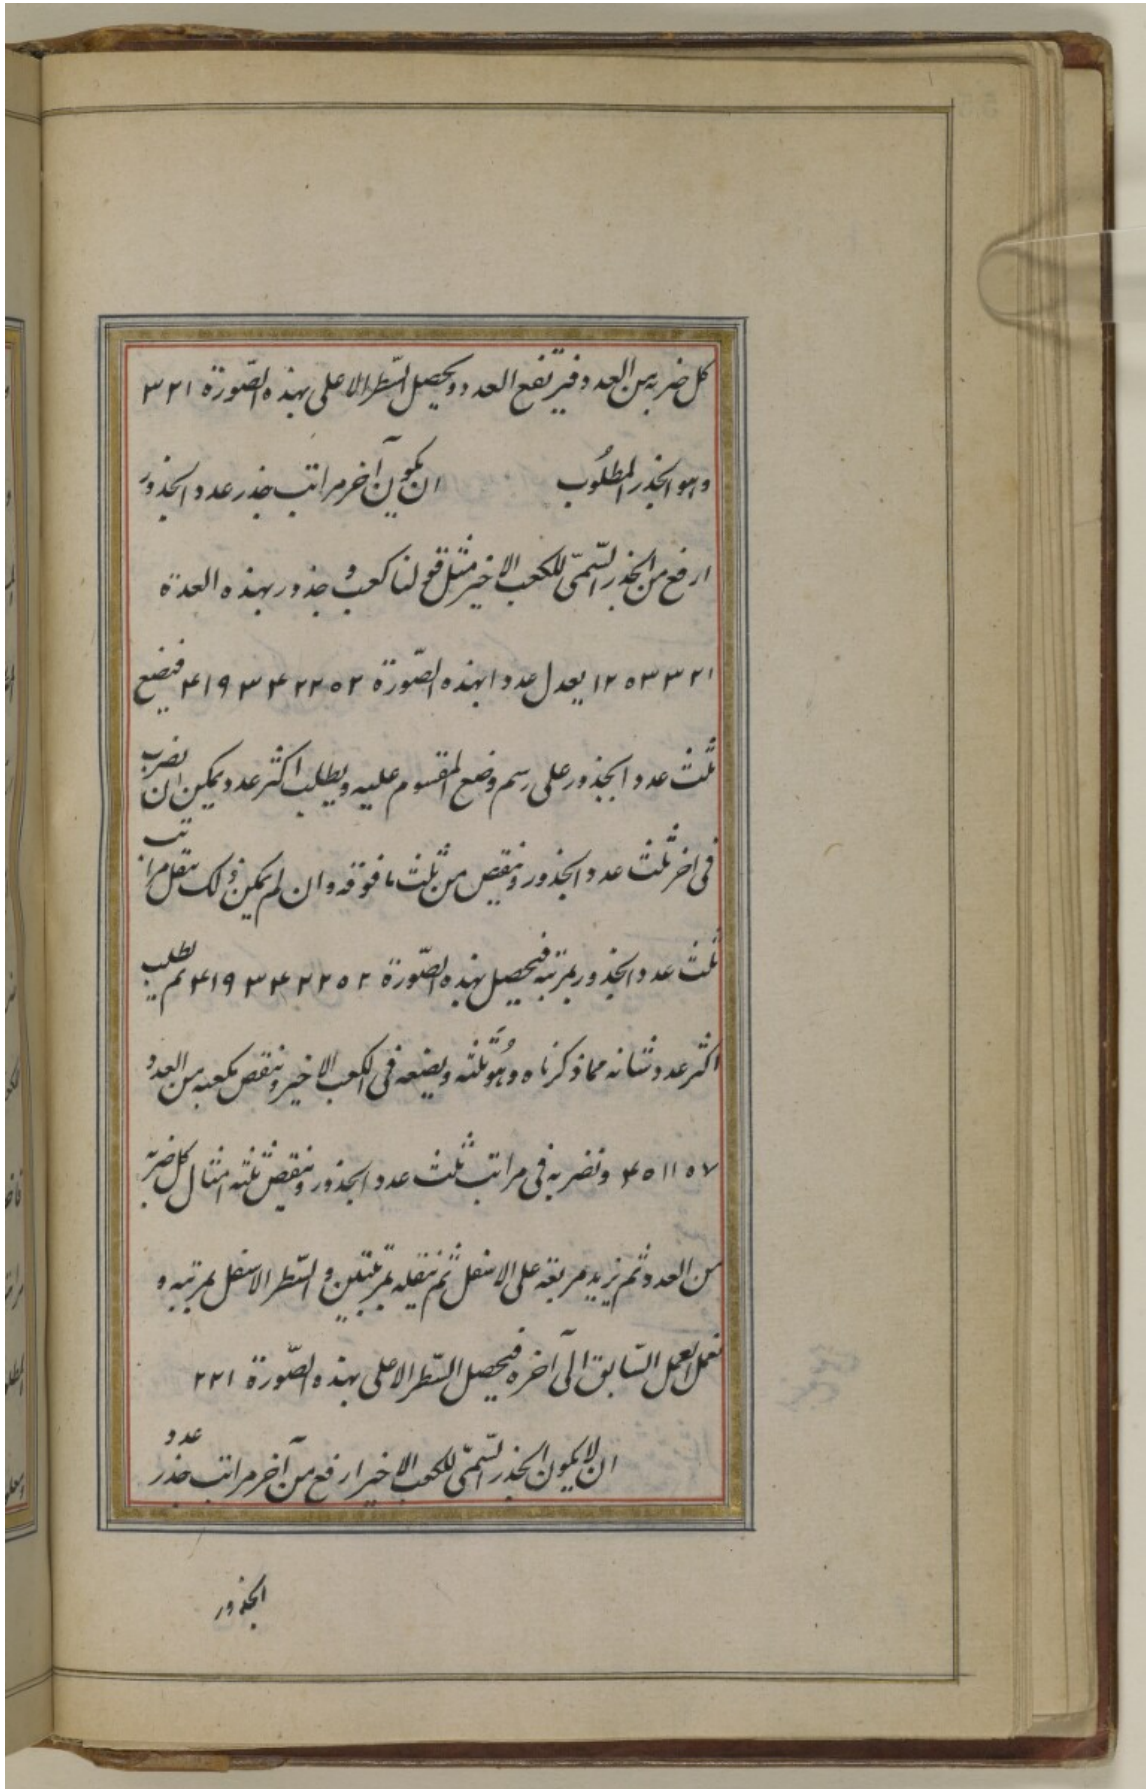 كل ضربه من العدد فيرتفع العدد ويحصل السّطر الاعلى بهذه الصّورة ٣٢١
وهو الجذر المطلُوب ان يكون آخر مراتب جذر عدد الجذور
ارفع من الجذر السّمىّ للكعب الاخير مثل قولنا كعب و جذور بهذه العدة
١٢٥٣٣٢١ يعدل عددا بهذه الصّورة ٤١٩٣٤٢٢٥٢ فيضع
ثلث عدد الجذور على رسم وضع المقسوم عليه ويطلب اكثر عدد يمكن ان يضرب
فى اخر ثلث عدد الجذور وينقص من ثلث ما فوقه وان لم يمكن ذلك ننقل مراتب
ثلث عدد الجذور بمرتبه فيحصل بهذه الصّورة ٤١٩٣٤٢٢٥٢ ثم يطلب
اكثر عدد شانه مما ذكرناه وهُو ثلثه ويضعه فى الكعب الاخير وننقص مكعبه من العدد
٤٥١١٥٧ ونضربه فى مراتب ثلث عدد الجذور وينقص ثلثه امثال كل ضربه
من العدد ثم نزيد مربعه على الاسفل ثم ننقله بمرتبتين و السّطر الاسفل بمرتبه و
نعمل العمل السّابق الى آخره فيحصل السّطر الاعلى بهذه الصّورة ٢٢١
ان لا يكون الجذر السّمىّ للكعب الاخير ارفع من آخر مراتب جذر عدد
الجذور